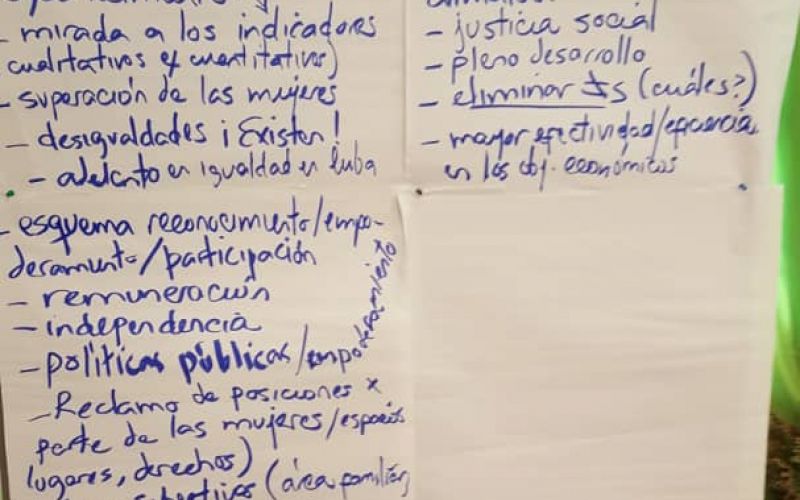 - mirada a los indicadores
cualitativos y cuantitativos)
- superación de las mujeres
- desigualdades ¡Existen!
- adelanto en igualdad en Cuba
- justicia social
- pleno desarrollo
- eliminar ≠s (cuáles?)
- mayor efectividad/eficiencia
en los obj. económicos
- esquema reconocimiento/empo-
deramiento/participación
- remuneración
- independencia
- políticas públicas/empoderamiento x
- Reclamo de posiciones x
parte de las mujeres/espacios
lugares, derechos)
(área familiar,